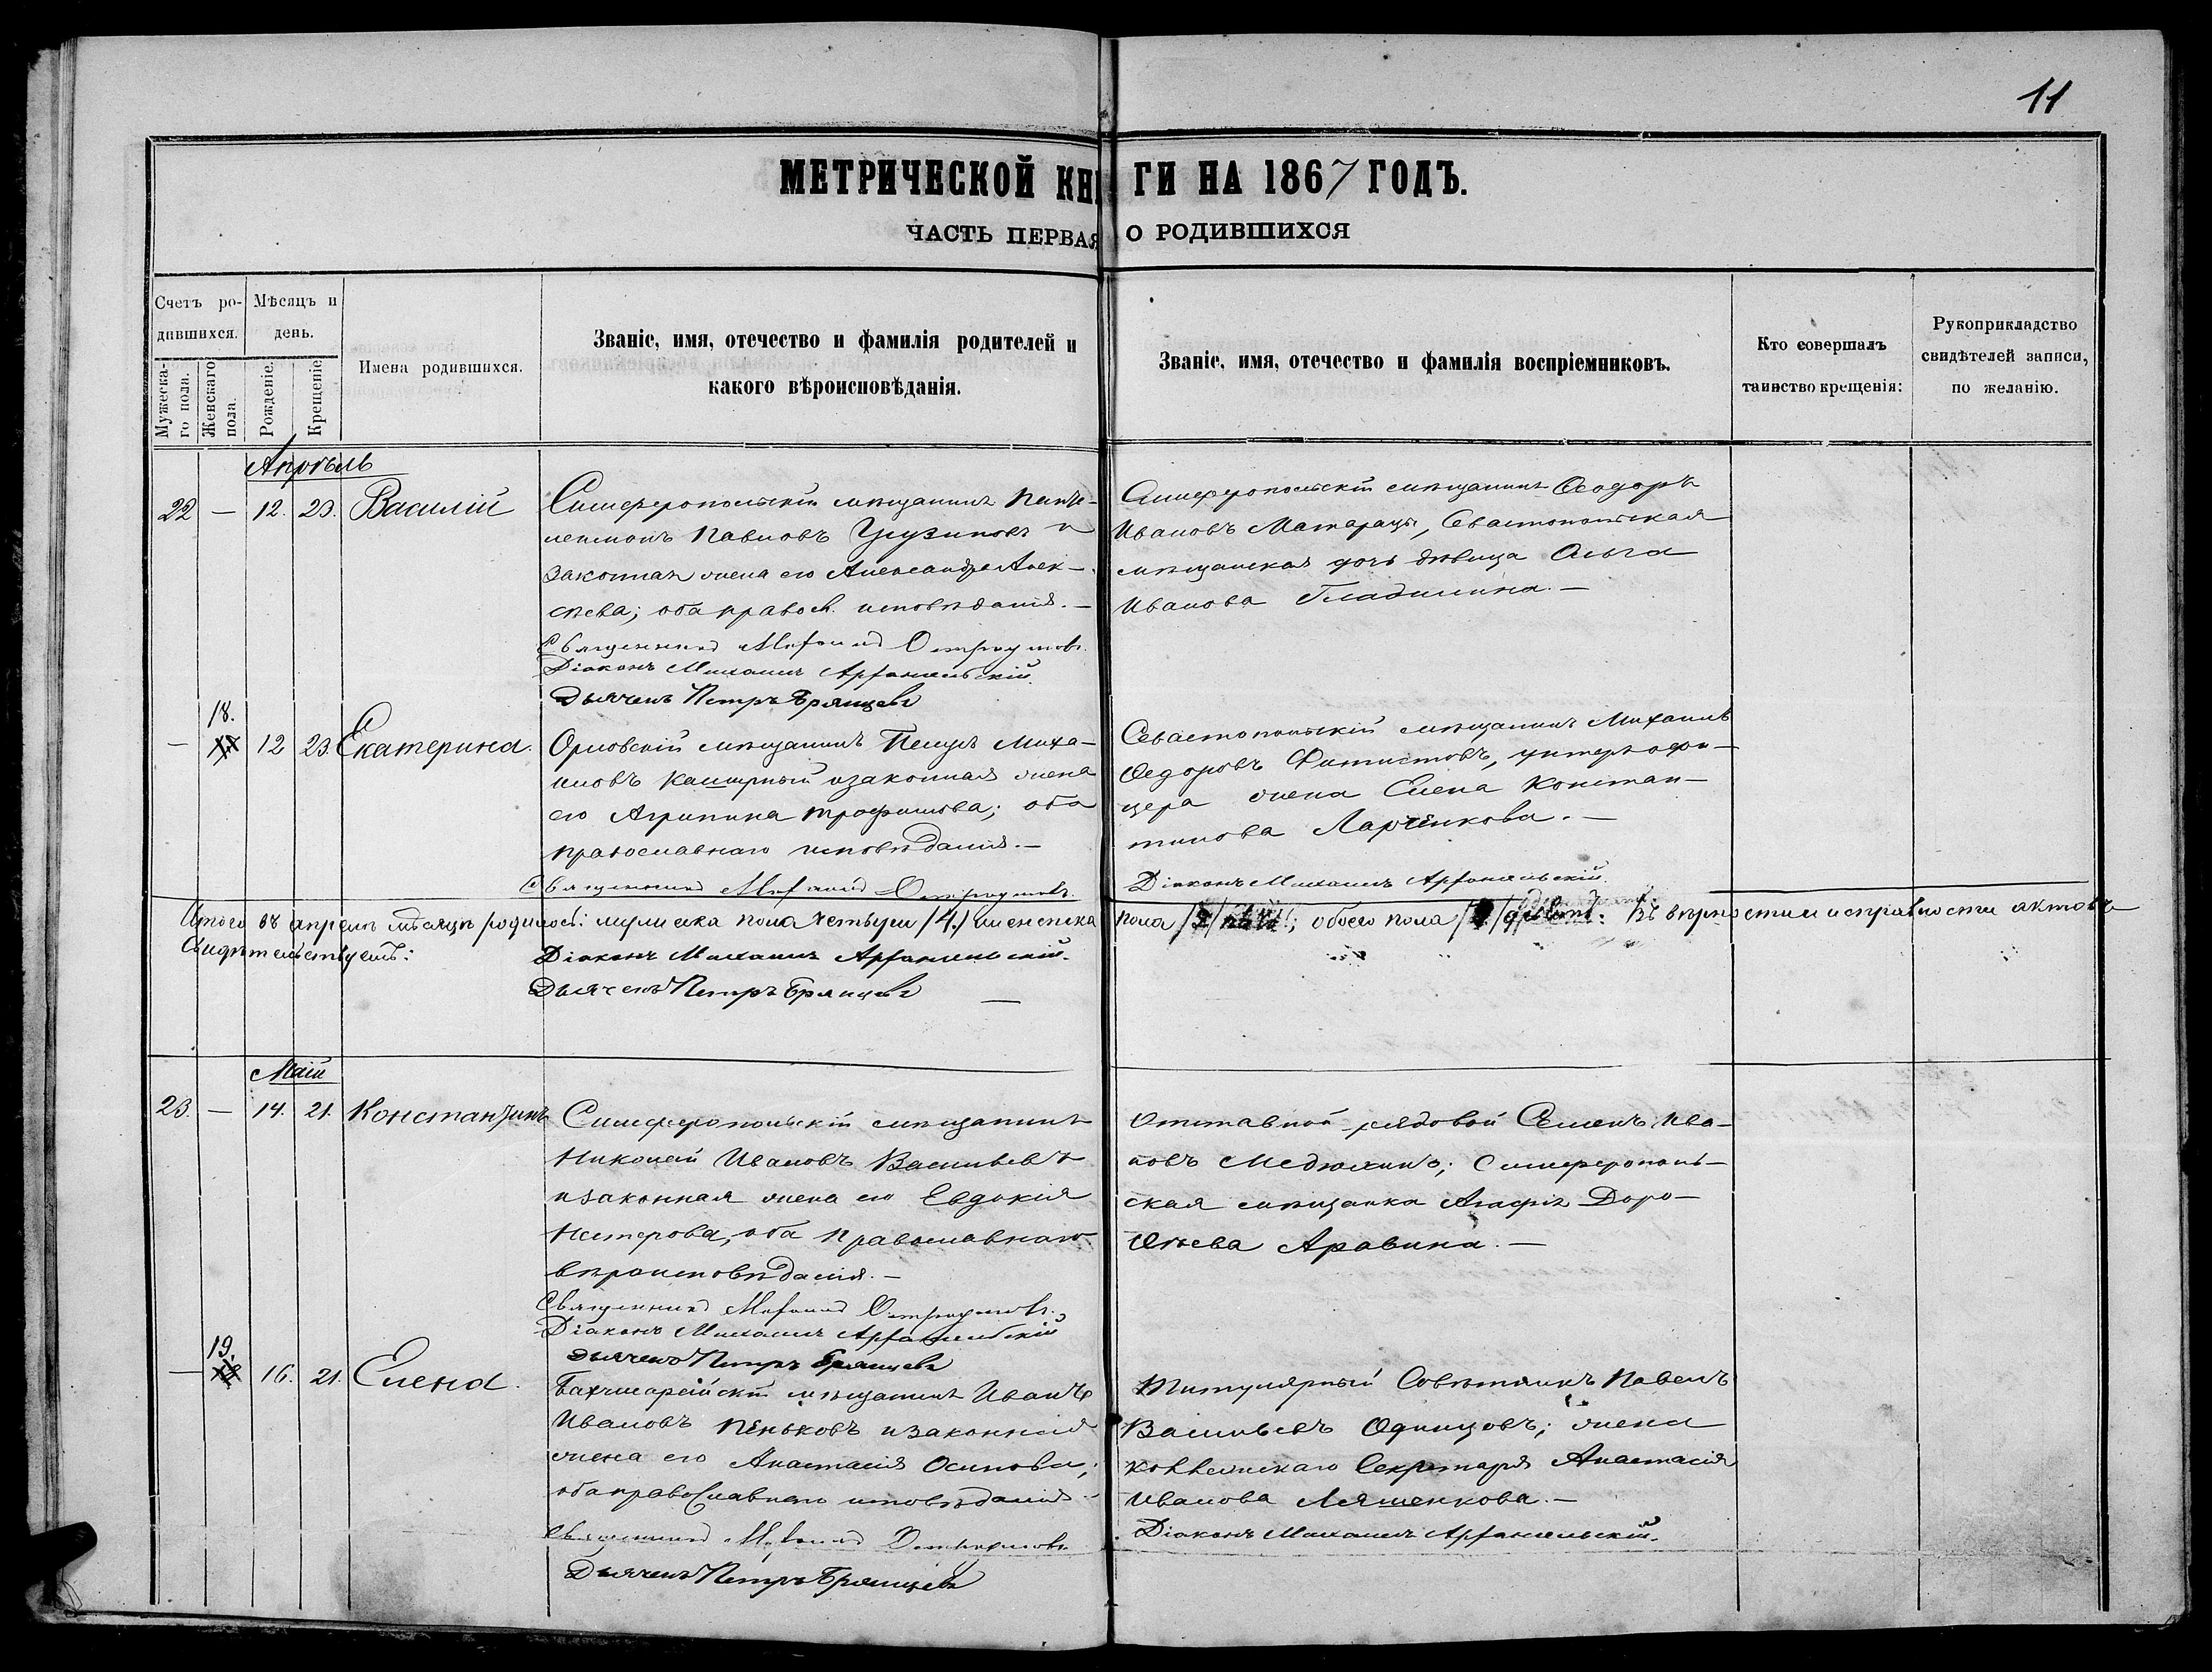 11
МЕТРИЧЕСКОЙ КНИГИ НА 1867 ГОДЪ.
ЧАСТЬ ПЕРВАЯ О РОДИВШИХСЯ
Счетъ ро-
дившихся.
Мужеска-
го пола.
Женскаго
пола.
Мѣсяцъ и
день.
Рожденіе.
Крещеніе
Имена родившихся.
Званіе, имя, отечество и фамилія родителей и
какого вѣроисповѣданія.
Званіе, имя, отечество и фамилія воспріемниковъ.
Кто совершалъ
таинство крещенія:
Рукоприкладство
свидѣтелей записи,
по желанію.
Апрѣль
22 — 12. 23. Василій
Симферопольскій мѣщанинъ Панте-
леимонъ Павловъ и
законная жена его Александра Алек-
сѣева; оба правосл. исповѣданія. —
Священникъ
Діаконъ Михаилъ Архангельскій
Дьячекъ Петръ Брянцевъ
Симферопольскій мѣщанинъ Ѳеодоръ
Ивановъ Матараци, Севастопольская
мѣщанская дочь дѣвица Ольга
Иванова —
— 18. 12 23. Екатерина.
Орловскій мѣщанинъ Миха-
иловъ изаконная жена
его Агрипина Трофимова; оба
православнаго исповѣданія. —
Священникъ
Севастопольскій мѣщанинъ Михаилъ
Ѳедоровъ унтеръ офи-
цера жена Елена Констан-
тинова Ларченкова. —
Діаконъ Михаилъ Архангельскій.
Итого въ апрелѣ мѣсяцѣ родилось: мужеска пола четыре /4./ женска
пола обоего пола Въ вѣрности и исправности актовъ
свидѣтельствуемъ:
Діаконъ Михаилъ Архангельскій.
Дьячекъ Петръ Брянцевъ —
Маій
23. — 14. 21. Константинъ
Симферопольскій мѣщанинъ
Николай Ивановъ Васильевъ
изаконная жена его Евдокія
Нестерова, оба православнаго
вѣроисповѣданія. —
Священникъ
Діаконъ Михаилъ Архангельскій
Дьячекъ Петръ Брянцевъ
Отставной рядовой Семенъ Ива-
новъ Симферополь-
ская мѣщанка Доро-
ѳѣева Аравина. —
— 19. 16. 21. Елена.
Бахчисарайскій мѣщанинъ Иванъ
Ивановъ Пеньковъ изаконная
жена его Анастасія Осипова;
оба православнаго исповѣданія. —
Священникъ
Дьячекъ Петръ Брянцевъ
Титулярный Совѣтникъ Павелъ
Васильевъ Одинцовъ; жена
Секретаря Анастасія
Иванова Ляшенкова. —
Діаконъ Михаилъ Архангельскій.